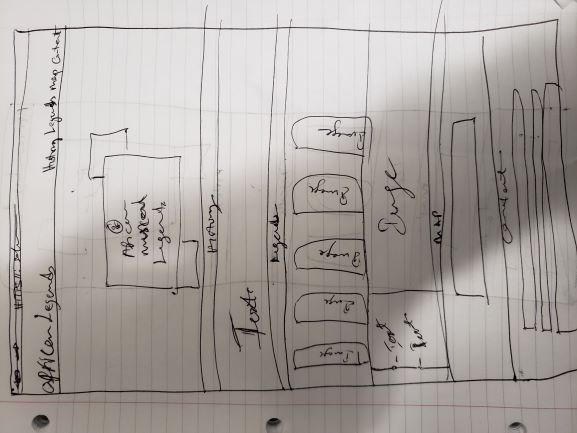 HTTPS://
African Legends
History Legends Map Contact
African
musical
Legends
History
Text
Legends
Image
Image
Image
Image
Image
Text
Text
Image
MAP
Contact